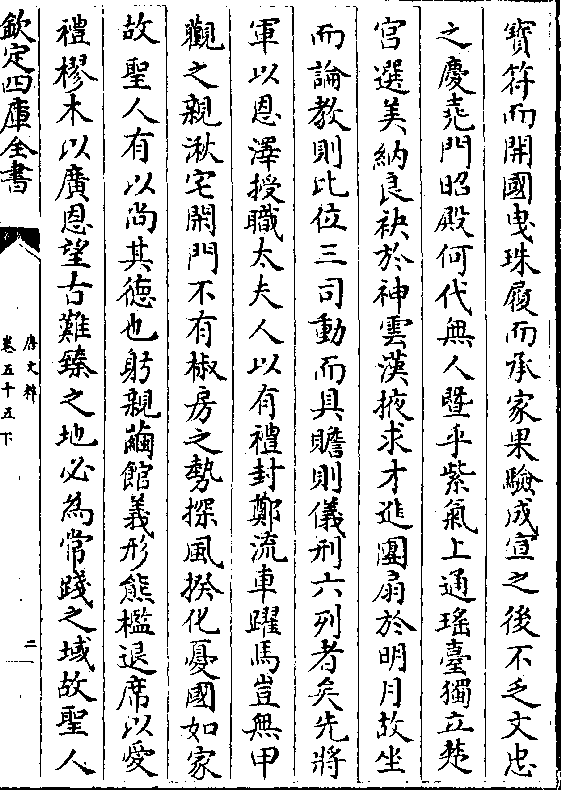 寶符而開國曵珠履而承家果驗成宣之後不乏文忠
之慶堯門昭殿何代無人暨乎紫氣上通瑤臺獨立楚
宫選美納良袂於神雲漢掖求才進團扇於明月故坐
而論教則比位三司動而具瞻則儀刑六列者矣先將
軍以恩澤授職太夫人以有禮封鄭流車躍馬豈無甲
觀之親湫宅閈門不有椒房之勢探風揆化憂國如家
故聖人有以尚其德也躬親繭館義形熊檻退席以愛
禮樛木以廣恩望古難臻之地必為常踐之域故聖人
欽定四庫全書
唐文粹
卷五十五下
二